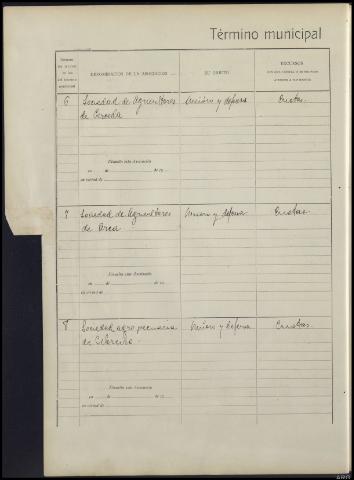 Término municipal
DENOMINACIÓN DE LA ASOCIACIÓN
SU OBJETO
RECURSOS
6 Sociedad de Agricultores Unión y defensa Cuotas
de Cerceda
Disuelta esta Asociación
en de de 19
en virtud de
7 Sociedad de Agricultores Unión y defensa Cuotas
de Arca
Disuelta esta Asociación
en de de 19
en virtud de
8 Sociedad agro pecuaria Unión y defensa Cuotas
de
Disuelta esta Asociación
en de de 19
en virtud de